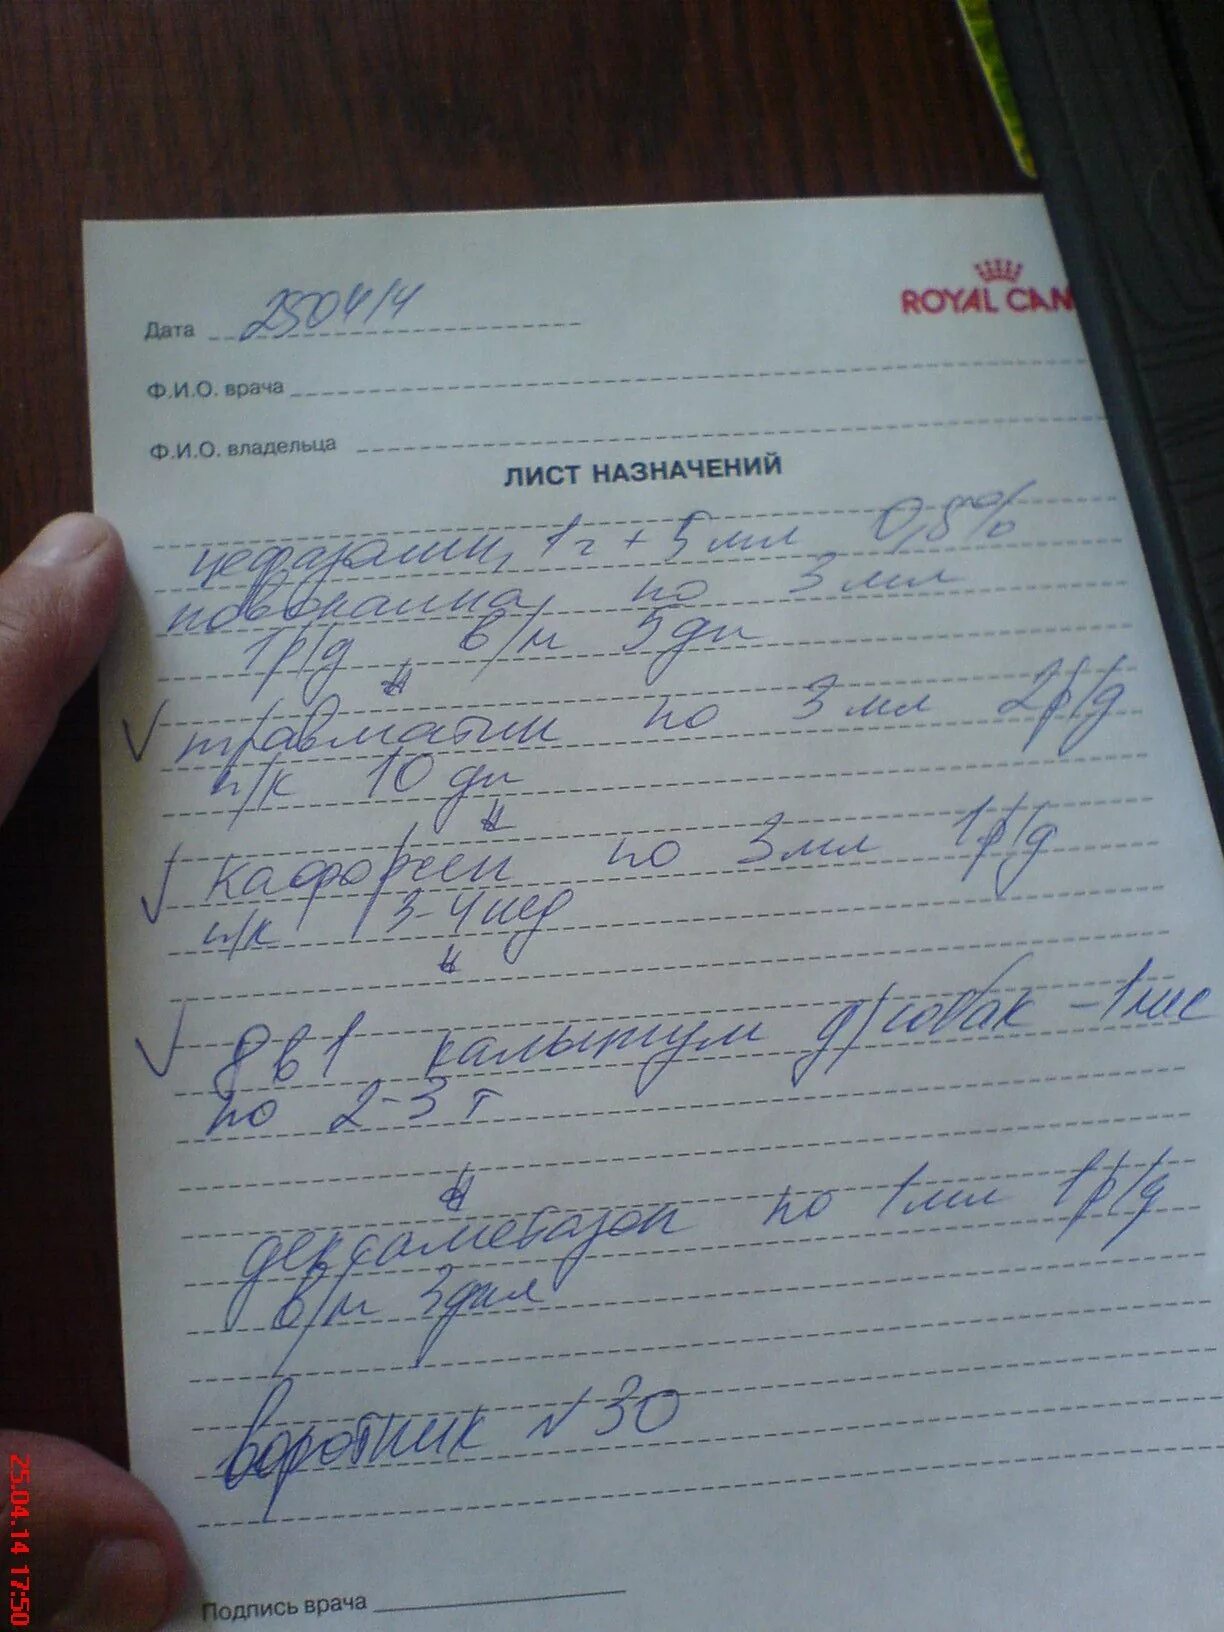 ROYAL CAN
Дата 250414
Ф.И.О. врача
Ф.И.О. владельца
ЛИСТ НАЗНАЧЕНИЙ
цефазолин 1г + 5 мл 0,5%
новокаина по 3 мл
1р/д в/м 5 дн
травматин по 3 мл 2р/д
п/к 10 дн
по 3 мл 1р/д
п/к 3-4 нед
8 в 1 кальциум д/собак - 1 мес
по 2-3 т
дексаметазон по 1 мл 1р/д
в/м 3 дня
воротник N 30
Подпись врача
25.04.14 17:50